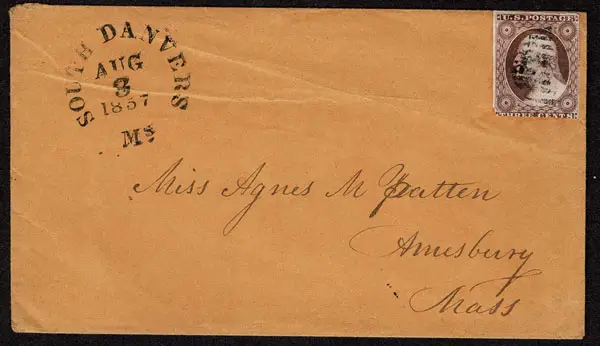 SOUTH DANVERS
AUG
3
1857
Ms
U.S. POSTAGE
THREE CENTS
Miss Agnes M Patten
Amesbury
Mass